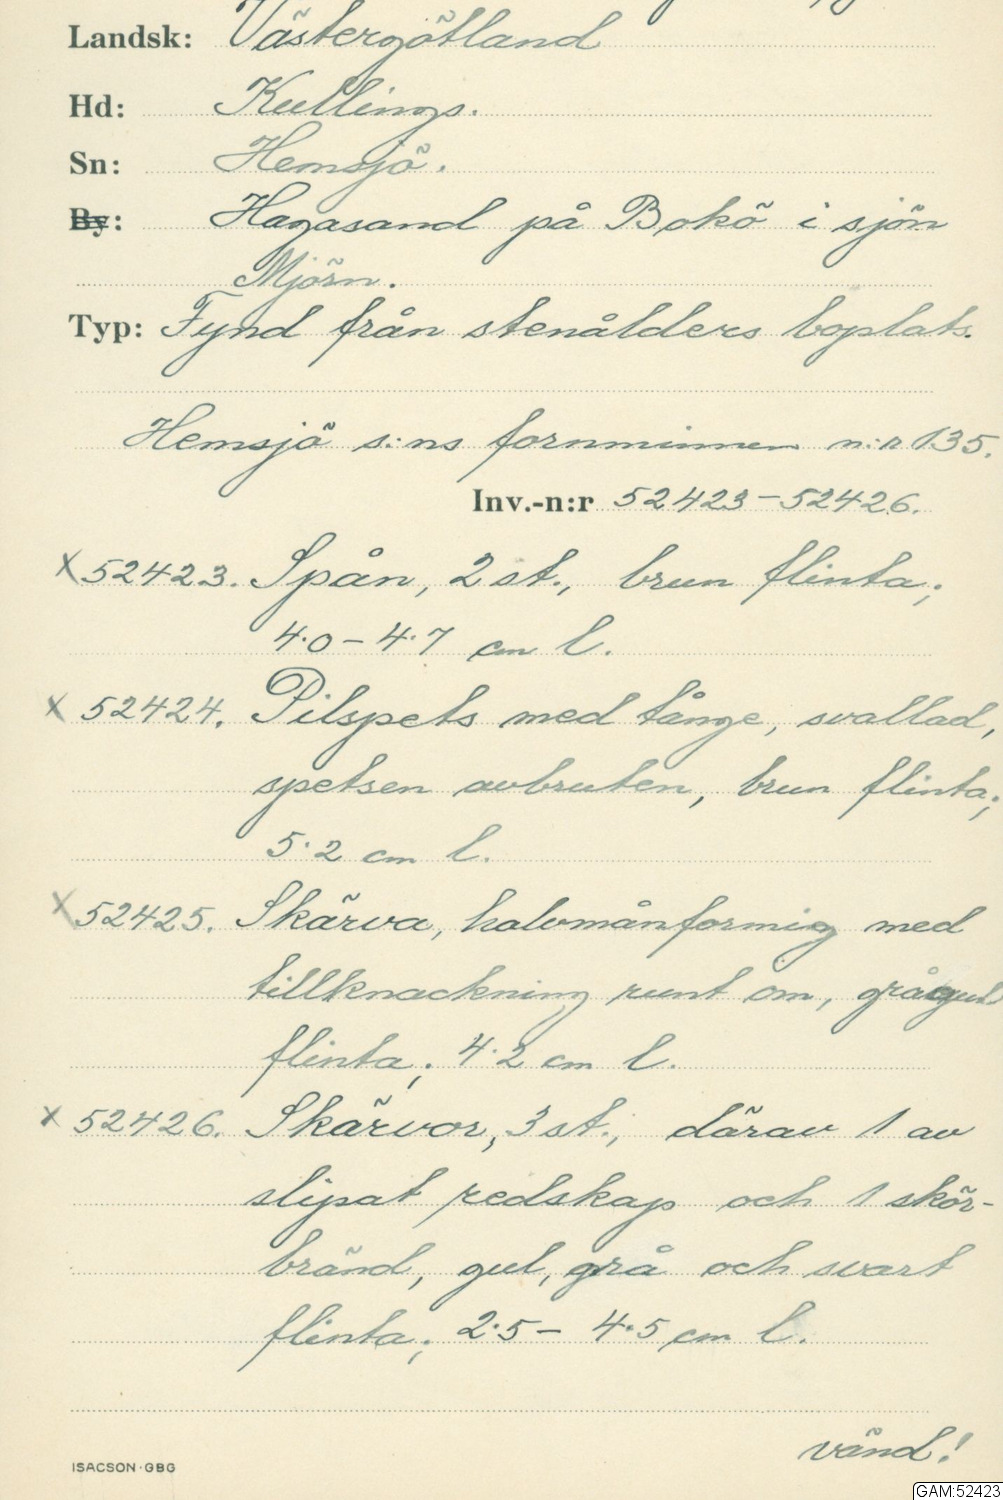 Landsk: Västergötland
Hd: Kullings.
Sn: Hemsjö.
By: Hagasand på Bokö i sjön
Mjörn.
Typ: Fynd från stenålders boplats.
Hemsjö s:ns fornminnen n:r 135.
Inv.-n:r 52423-52426.
x 52423. Spån, 2 st., brun flinta;
4·0-4·7 cm l.
x 52424. Pilspets med tånge, svallad,
spetsen avbruten, brun flinta;
5·2 cm l.
x 52425. Skärva, halvmånformig med
tillknackning runt om, grågul
flinta; 4·2 cm l.
x 52426. Skärvor, 3 st., därav 1 av
slipat redskap och 1 skör-
bränd, gul, grå och svart
flinta; 2·5- 4·5 cm l.
vänd!
ISACSON·GBG
GAM:52423